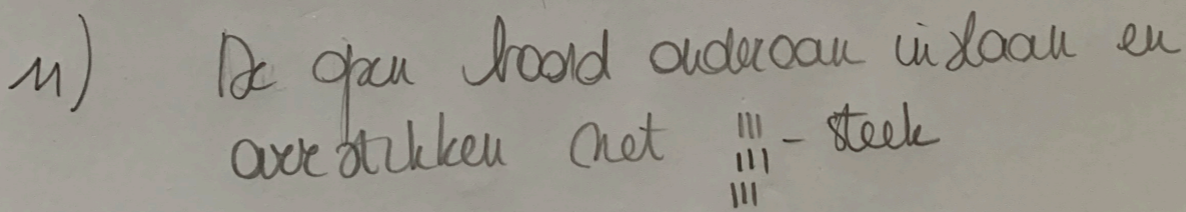 11) De open boord onderaan inslaan en
overstikken met ||| ||| ||| - steek